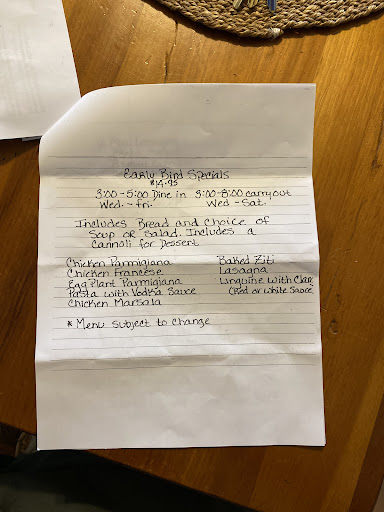 Early Bird Specials
$14.95
3:00 - 5:00 Dine in 3:00-8:00 carryout
Wed. - Fri. Wed - Sat.
Includes Bread and Choice of
Soup or Salad. Includes a
Cannoli for Dessert
Chicken Parmigiana Baked Ziti
Chicken Francese Lasagna
Egg Plant Parmigiana Linguine with Clam
Pasta with Vodka Sauce (Red or White Sauce
Chicken Marsala
* Menu Subject to Change